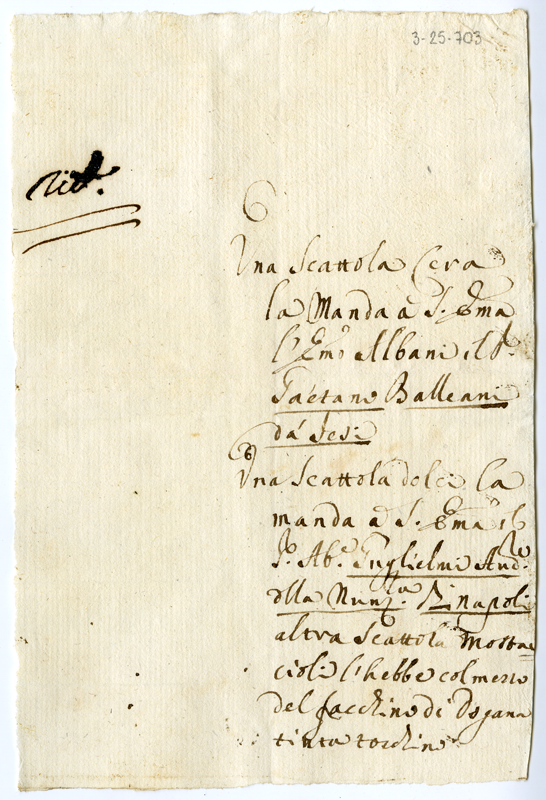 3-25-703
Ris.
Una Scattola Cera
la Manda à S. Ema
l'Emo Albani il Sr.
Gaetano Balleani
da Jesi
Una Scattola dolci la
manda à S. Ema il
Sr. Ab.e Guglielmi Audre.
dlla Nunz.ra di Napoli
altra Scattola Mostac
cioli l'hebbe col mezzo
del facchino di Dogana
tinta torchino